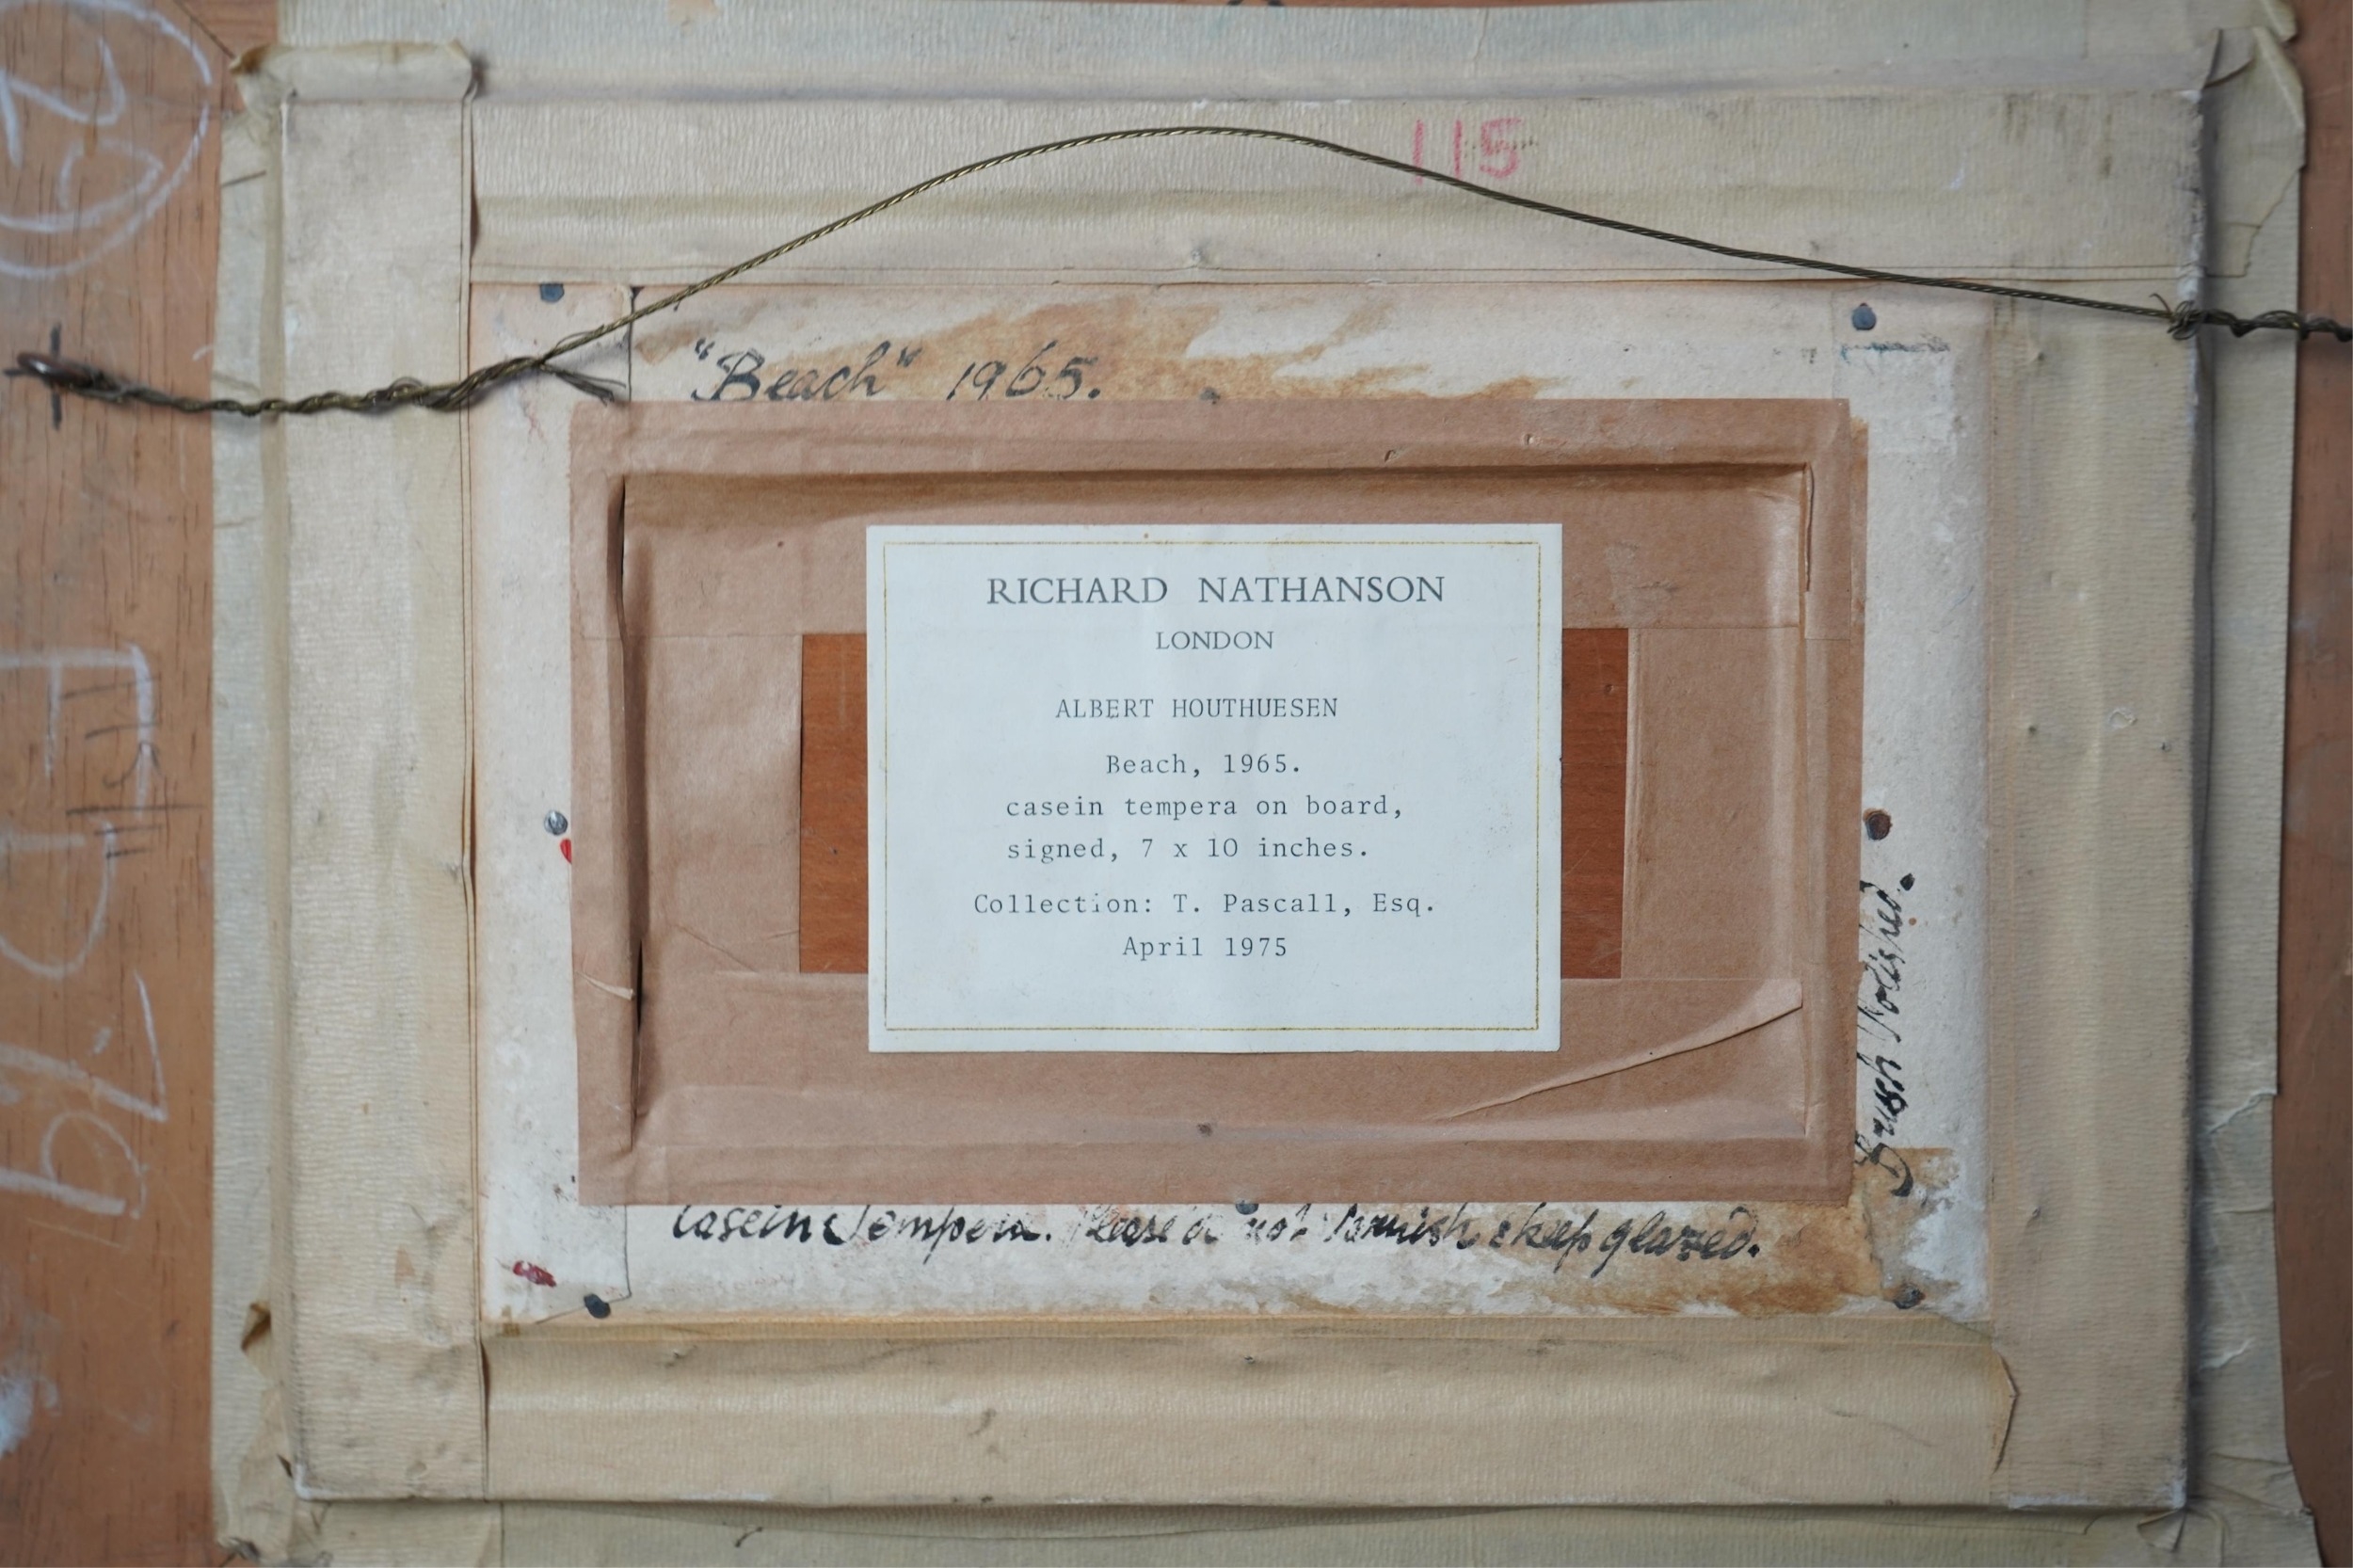 115
"Beach" 1965.
RICHARD NATHANSON
LONDON
ALBERT HOUTHUESEN
Beach, 1965.
casein tempera on board,
signed, 7 x 10 inches.
Collection: T. Pascall, Esq.
April 1975
Brush Polished.
Casein Tempera. Please do not Varnish & keep glazed.